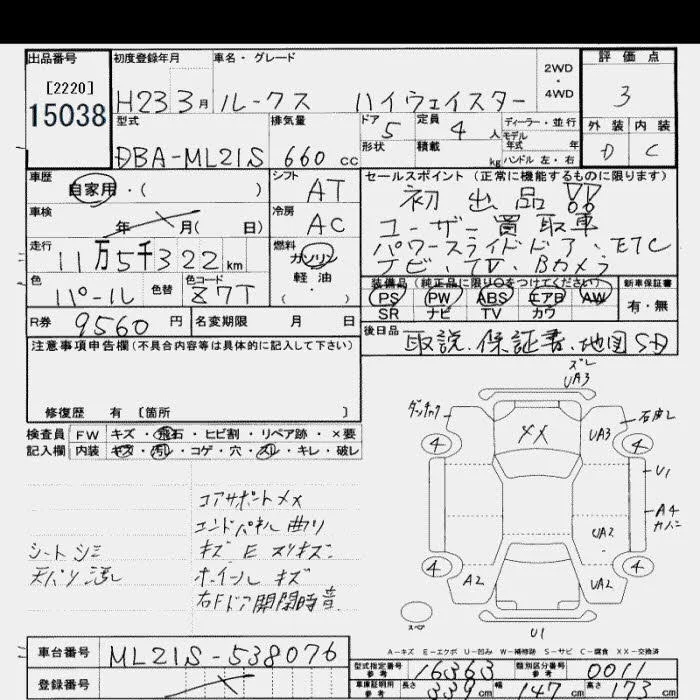 出品番号 初度登録年月 車名・グレード 2WD・4WD 評価点
[2220]
15038
H23 3月 ルークス ハイウェイスター 3
型式 排気量 ドア 定員 ディーラー・並行 外装 内装
DBA-ML21S 660cc 5 4人 モデル年式 年 D C
形状 積載 kg ハンドル 左・右
車歴 シフト セールスポイント (正常に機能するものに限ります)
自家用・( ) AT 初出品!!
車検 冷房 ユーザー買取車
年 月( 日) AC パワースライドドア、ETC
走行 燃料 ナビ TV、Bカメラ
11万5千322km ガソリン
軽油
・( )
色 色替 色コード 装備品 (純正品に限り○をつけてください) 新車保証書
パール Z7T PS PW ABS エアB AW 有・無
SR ナビ TV カワ
R券 9560円 名変期限 月 日 後日品 取説、保証書、地図SD
注意事項申告欄(不具合内容等は具体的に記入して下さい)
修復歴 有 〔箇所 〕
検査員 FW キズ・飛石・ヒビ割・リペア跡・×要
記入欄 内装 キズ・汚レ・コゲ・穴・スレ・キレ・破レ
コアサポートメメ
エンドパネル曲り
シートシミ キズ E スリキズ
天バリ汚レ ホイールキズ
右Fドア開閉時音
ズレ
UA3
××
UA3
4
4
U1
A4
カバー
UA2
4
4
A2
UA2
スペア
U1
A-キズ E-エクボ U-凹み W-補修跡 S-サビ C-腐食 XX-交換済
車台番号 ML21S-538076
登録番号
型式指定番号 参考 16363 類別区分番号 参考 0011
車庫証明用 参考 長さ 339cm 幅 147cm 高さ 173cm